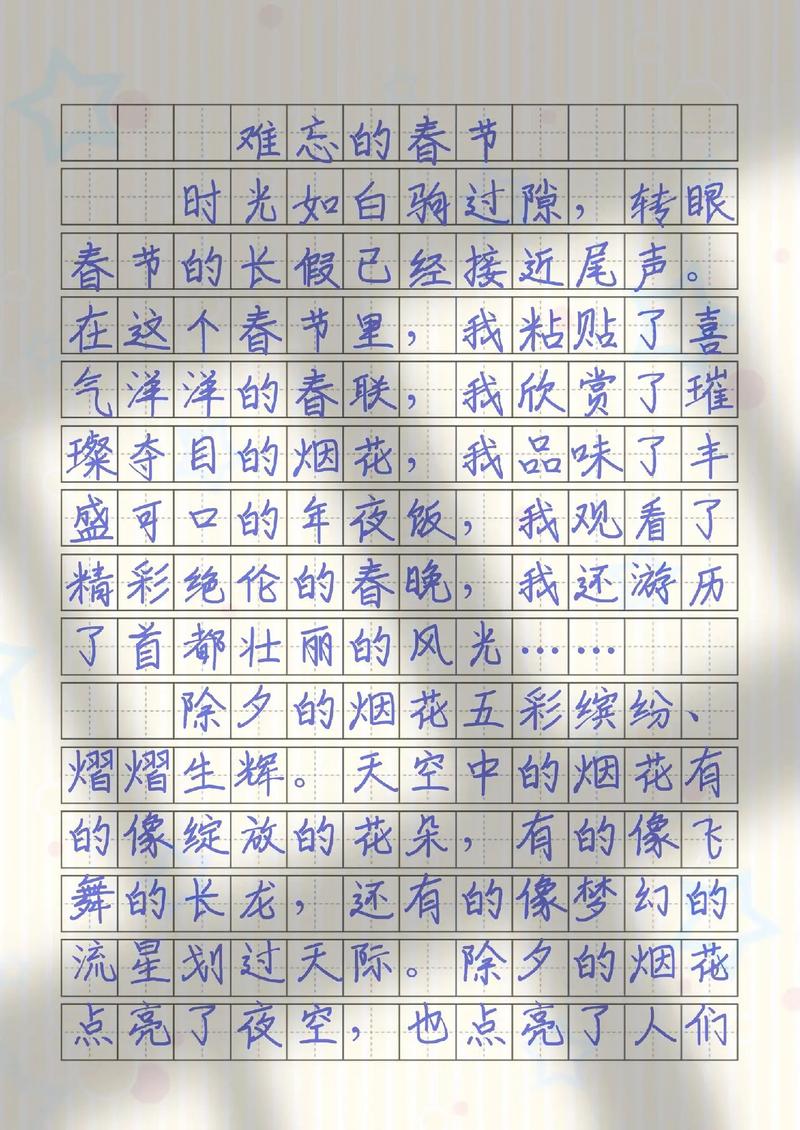 难忘的春节
时光如白驹过隙，转眼
春节的长假已经接近尾声。
在这个春节里，我粘贴了喜
气洋洋的春联，我欣赏了璀
璨夺目的烟花，我品味了丰
盛可口的年夜饭，我观看了
精彩绝伦的春晚，我还游历
了首都壮丽的风光……
除夕的烟花五彩缤纷、
熠熠生辉。天空中的烟花有
的像绽放的花朵，有的像飞
舞的长龙，还有的像梦幻的
流星划过天际。除夕的烟花
点亮了夜空，也点亮了人们